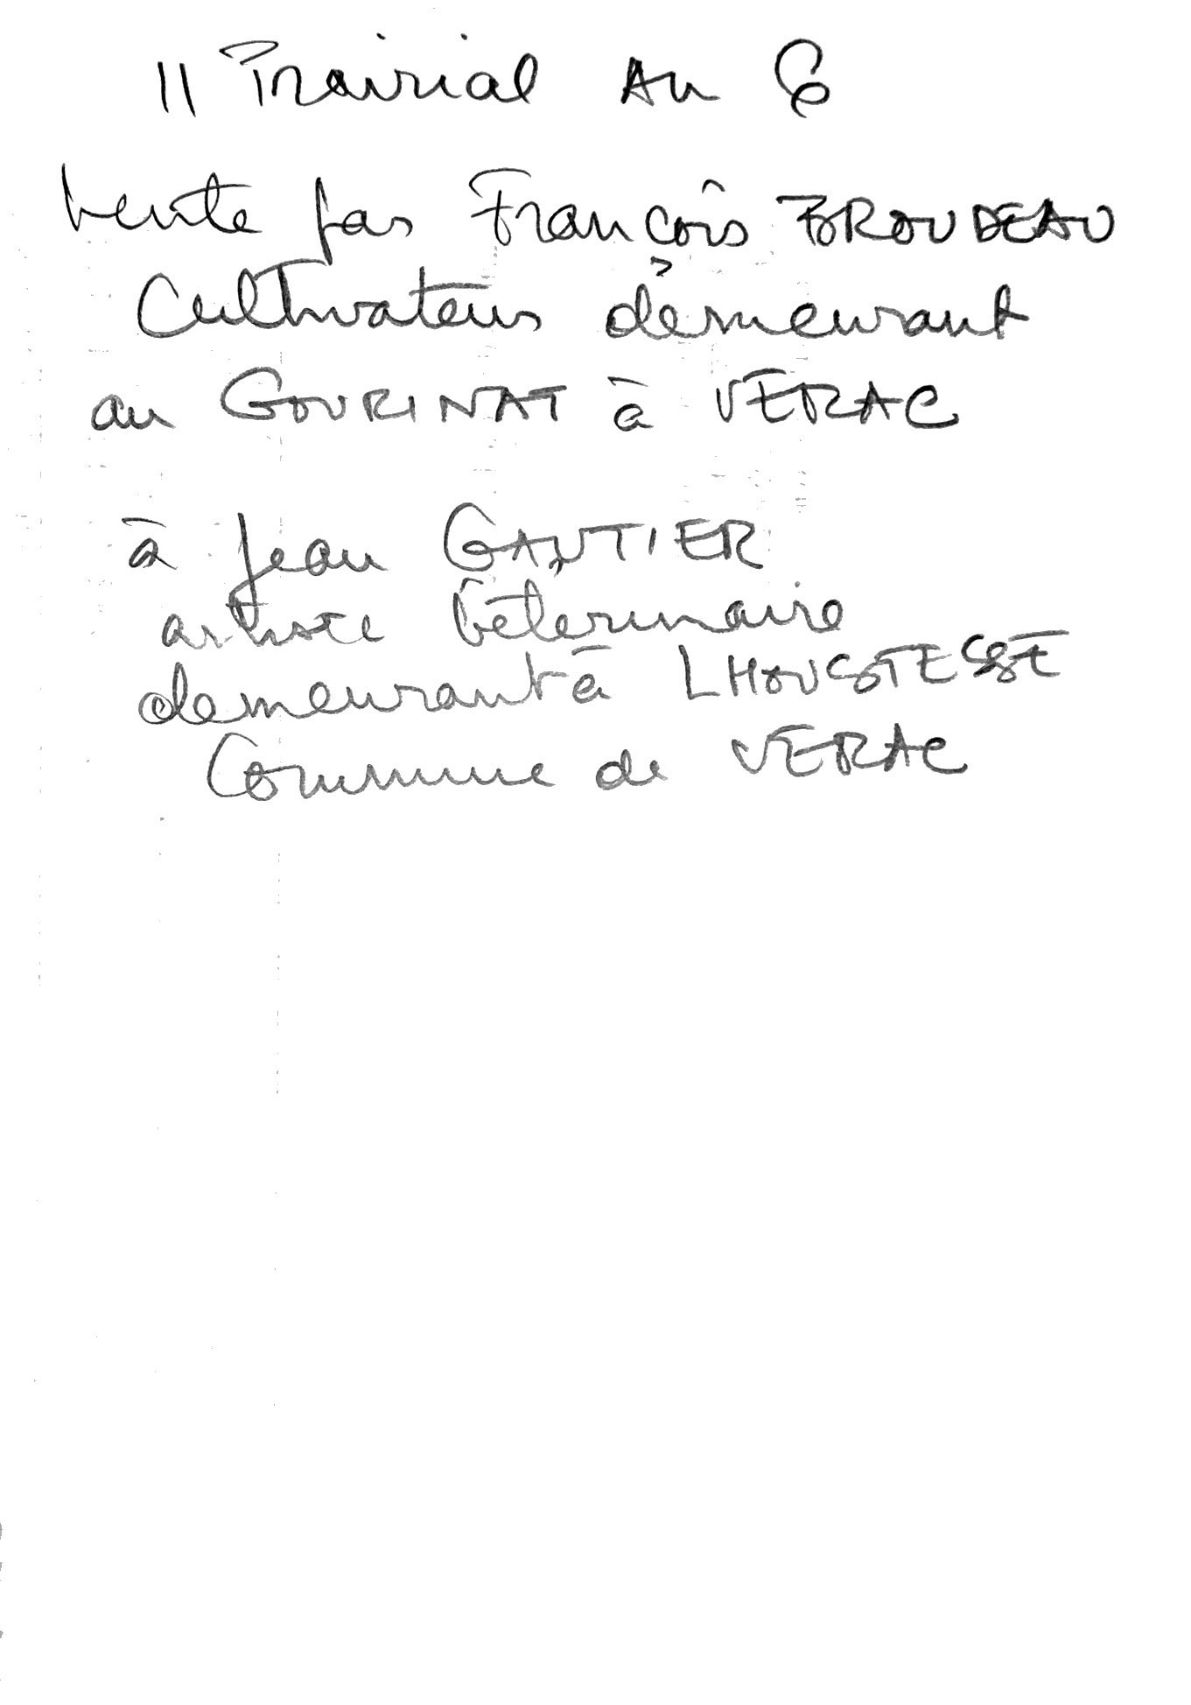 11 Prairial An 6
Vente par François BROUDEAU
Cultivateur demeurant
au GOURINAT à VERAC
à Jean GAUTIER
artiste Véterinaire
demeurant à LHOUSTESSE
Commune de VERAC